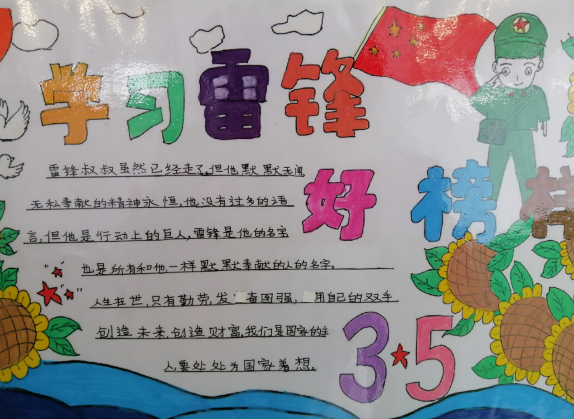 学习雷锋
好榜样
雷锋叔叔虽然已经走了,但他默默无闻
无私奉献的精神永恒,他没有过多的语
言,但他是行动上的巨人,雷锋是他的名字
也是所有和他一样默默奉献的人的名字。
人生在世,只有勤劳,发 奋图强, 用自己的双手
创造未来,创造财富,我们是国家的主
人要处处为国家着想。
3★5